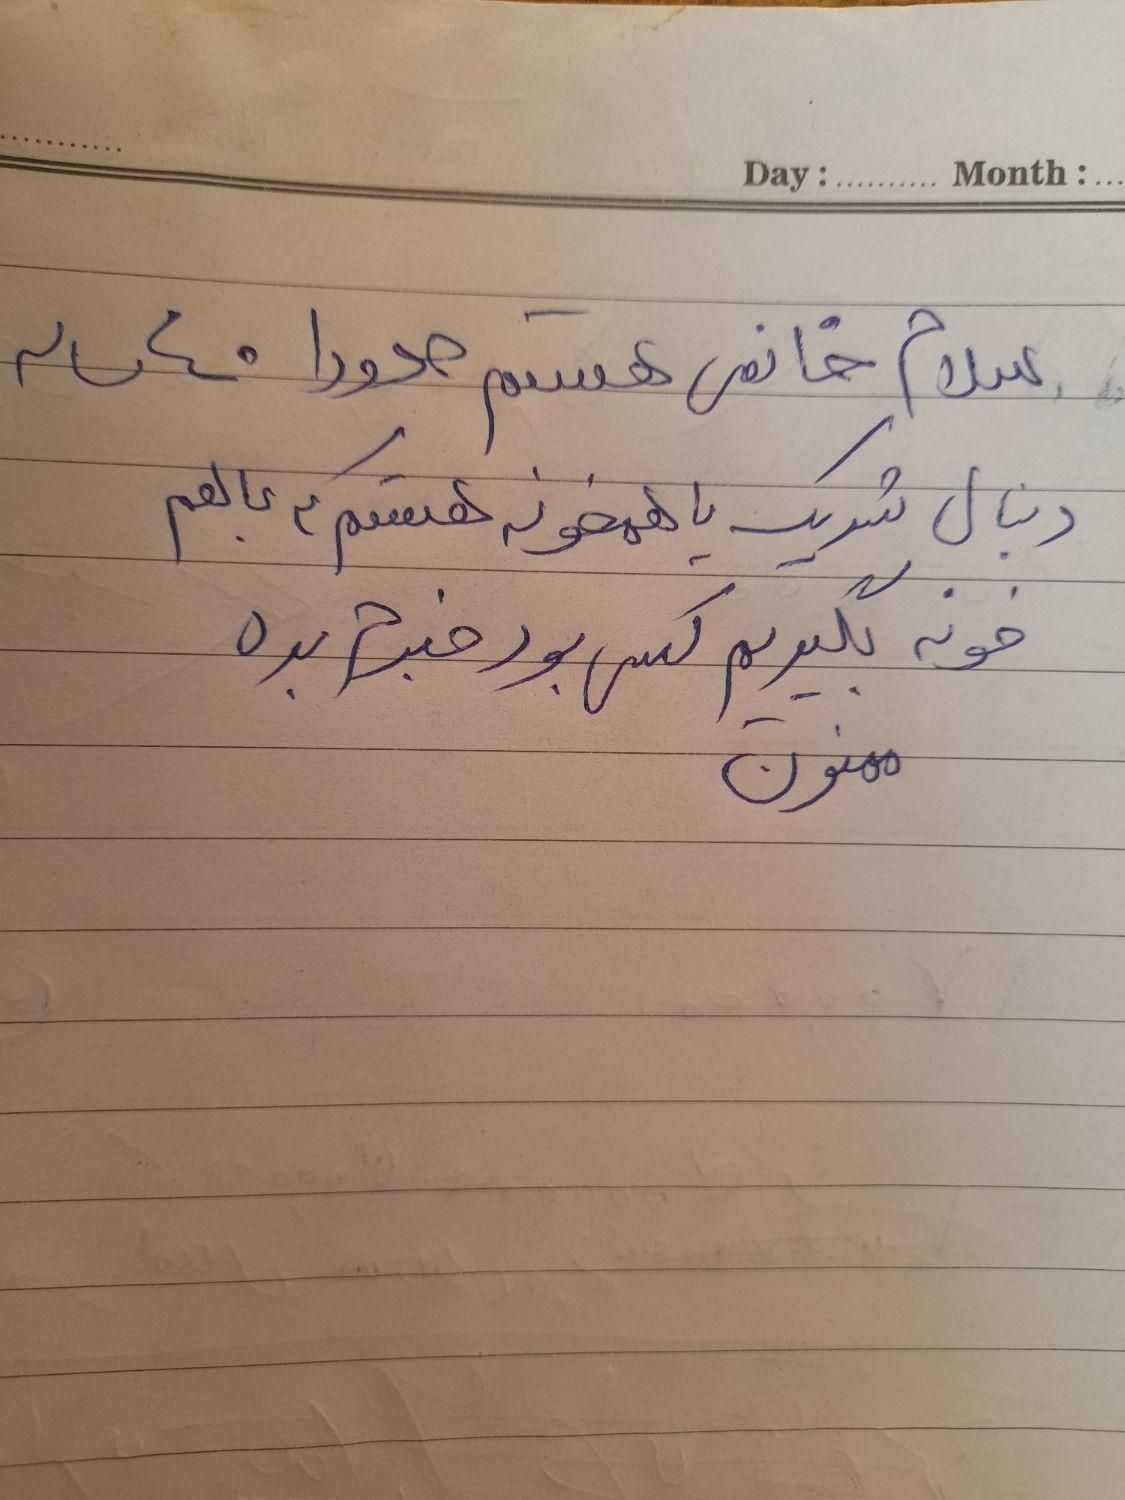 Day : .......... Month : ...
سلام خانمی هستم حدودا ۴۰ ساله
دنبال شریک یا همخونه هستم که باهم
خونه بگیریم کسی بود خبرم بده
ممنون